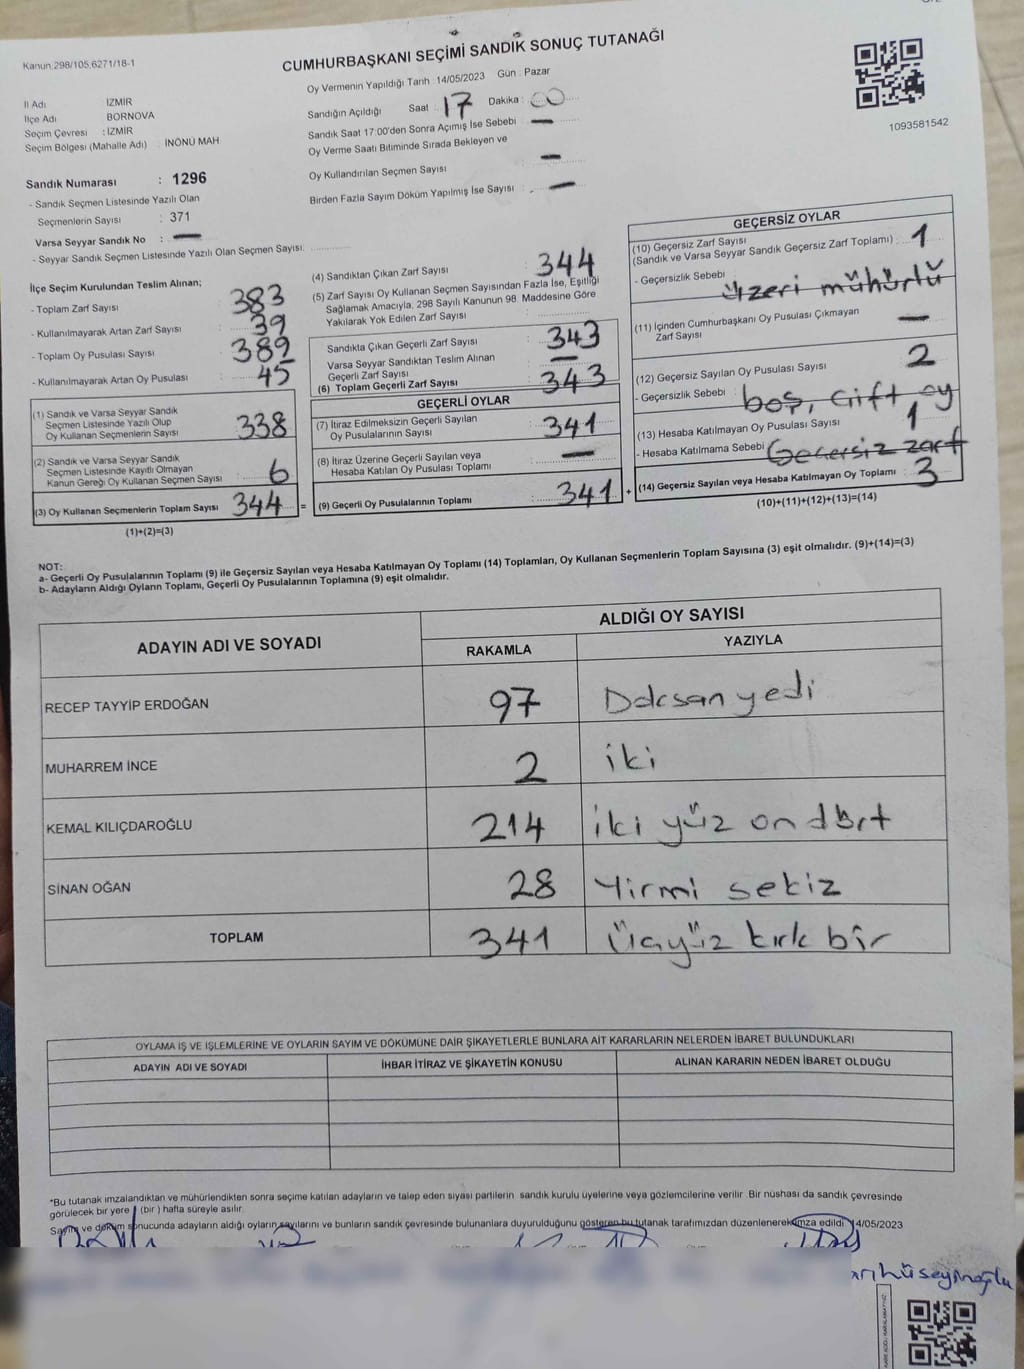 Kanun.298/105,6271/18-1
CUMHURBAŞKANI SEÇİMİ SANDIK SONUÇ TUTANAĞI
Oy Vermenin Yapıldığı Tarih : 14/05/2023 Gün : Pazar
İl Adı : İZMİR
İlçe Adı : BORNOVA
Seçim Çevresi : İZMİR
Seçim Bölgesi (Mahalle Adı) : İNÖNÜ MAH
Sandığın Açıldığı Saat : 17 Dakika : 00
Sandık Saat 17:00'den Sonra Açımış İse Sebebi : —
Oy Verme Saati Bitiminde Sırada Bekleyen ve
Oy Kullandırılan Seçmen Sayısı : —
Birden Fazla Sayım Döküm Yapılmış İse Sayısı : —
1093581542
Sandık Numarası : 1296
- Sandık Seçmen Listesinde Yazılı Olan
Seçmenlerin Sayısı : 371
Varsa Seyyar Sandık No : —
- Seyyar Sandık Seçmen Listesinde Yazılı Olan Seçmen Sayısı:
İlçe Seçim Kurulundan Teslim Alınan;
- Toplam Zarf Sayısı : 383
- Kullanılmayarak Artan Zarf Sayısı : 39
- Toplam Oy Pusulası Sayısı : 389
- Kullanılmayarak Artan Oy Pusulası : 45
(1) Sandık ve Varsa Seyyar Sandık
Seçmen Listesinde Yazılı Olup
Oy Kullanan Seçmenlerin Sayısı : 338
(2) Sandık ve Varsa Seyyar Sandık
Seçmen Listesinde Kayıtlı Olmayan
Kanun Gereği Oy Kullanan Seçmen Sayısı : 6
(3) Oy Kullanan Seçmenlerin Toplam Sayısı : 344 =
(1)+(2)=(3)
(4) Sandıktan Çıkan Zarf Sayısı : 344
(5) Zarf Sayısı Oy Kullanan Seçmen Sayısından Fazla İse, Eşitliği
Sağlamak Amacıyla, 298 Sayılı Kanunun 98. Maddesine Göre
Yakılarak Yok Edilen Zarf Sayısı :
Sandıkta Çıkan Geçerli Zarf Sayısı : 343
Varsa Seyyar Sandıktan Teslim Alınan
Geçerli Zarf Sayısı : —
(6) Toplam Geçerli Zarf Sayısı : 343
GEÇERLİ OYLAR
(7) İtiraz Edilmeksizin Geçerli Sayılan
Oy Pusulalarının Sayısı : 341
(8) İtiraz Üzerine Geçerli Sayılan veya
Hesaba Katılan Oy Pusulası Toplamı : —
(9) Geçerli Oy Pusulalarının Toplamı : 341 +
GEÇERSİZ OYLAR
(10) Geçersiz Zarf Sayısı
(Sandık ve Varsa Seyyar Sandık Geçersiz Zarf Toplamı) : 1
- Geçersizlik Sebebi : üzeri mühürlü
(11) İçinden Cumhurbaşkanı Oy Pusulası Çıkmayan
Zarf Sayısı : —
(12) Geçersiz Sayılan Oy Pusulası Sayısı : 2
- Geçersizlik Sebebi : boş, Çift oy
(13) Hesaba Katılmayan Oy Pusulası Sayısı : 1
- Hesaba Katılmama Sebebi : Geçersiz zarf
(14) Geçersiz Sayılan veya Hesaba Katılmayan Oy Toplamı : 3
(10)+(11)+(12)+(13)=(14)
NOT:
a- Geçerli Oy Pusulalarının Toplamı (9) ile Geçersiz Sayılan veya Hesaba Katılmayan Oy Toplamı (14) Toplamları, Oy Kullanan Seçmenlerin Toplam Sayısına (3) eşit olmalıdır. (9)+(14)=(3)
b- Adayların Aldığı Oyların Toplamı, Geçerli Oy Pusulalarının Toplamına (9) eşit olmalıdır.
ADAYIN ADI VE SOYADI
ALDIĞI OY SAYISI
RAKAMLA YAZIYLA
RECEP TAYYİP ERDOĞAN 97 Doksan yedi
MUHARREM İNCE 2 iki
KEMAL KILIÇDAROĞLU 214 iki yüz on dört
SİNAN OĞAN 28 Yirmi sekiz
TOPLAM 341 Üçyüz kırk bir
OYLAMA İŞ VE İŞLEMLERİNE VE OYLARIN SAYIM VE DÖKÜMÜNE DAİR ŞİKAYETLERLE BUNLARA AİT KARARLARIN NELERDEN İBARET BULUNDUKLARI
ADAYIN ADI VE SOYADI İHBAR İTİRAZ VE ŞİKAYETİN KONUSU ALINAN KARARIN NEDEN İBARET OLDUĞU
*Bu tutanak imzalandıktan ve mühürlendikten sonra seçime katılan adayların ve talep eden siyasi partilerin sandık kurulu üyelerine veya gözlemcilerine verilir .Bir nüshası da sandık çevresinde
görülecek bir yere 1 (bir ) hafta süreyle asılır.
Sayım ve döküm sonucunda adayların aldığı oyların sayılarını ve bunların sandık çevresinde bulunanlara duyurulduğunu gösteren bu tutanak tarafımızdan düzenlenerek imza edildi. 14/05/2023